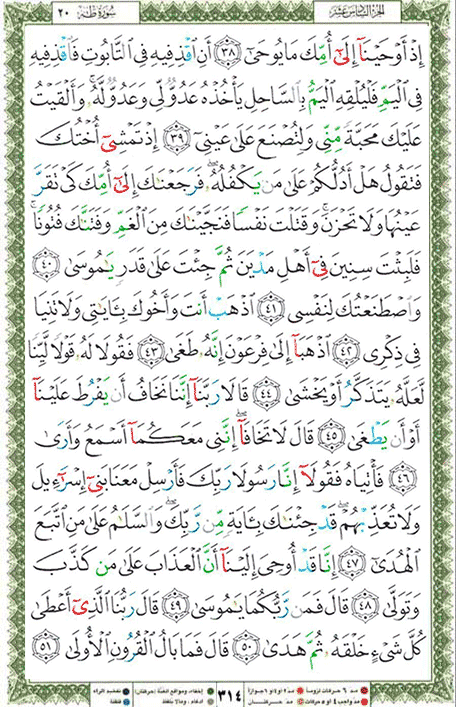 الجزء السادس عشر
سورة طه ٢٠
إِذْ أَوْحَيْنَآ إِلَىٰٓ أُمِّكَ مَا يُوحَىٰٓ ٣٨ أَنِ ٱقْذِفِيهِ فِى ٱلتَّابُوتِ فَٱقْذِفِيهِ
فِى ٱلْيَمِّ فَلْيُلْقِهِ ٱلْيَمُّ بِٱلسَّاحِلِ يَأْخُذْهُ عَدُوٌّ لِّى وَعَدُوٌّ لَّهُۥ ۚ وَأَلْقَيْتُ
عَلَيْكَ مَحَبَّةً مِّنِّى وَلِتُصْنَعَ عَلَىٰ عَيْنِىٓ ٣٩ إِذْ تَمْشِىٓ أُخْتُكَ
فَتَقُولُ هَلْ أَدُلُّكُمْ عَلَىٰ مَن يَكْفُلُهُۥ ۖ فَرَجَعْنَـٰكَ إِلَىٰٓ أُمِّكَ كَىْ تَقَرَّ
عَيْنُهَا وَلَا تَحْزَنَ ۚ وَقَتَلْتَ نَفْسًا فَنَجَّيْنَـٰكَ مِنَ ٱلْغَمِّ وَفَتَنَّـٰكَ فُتُونًا ۚ
فَلَبِثْتَ سِنِينَ فِىٓ أَهْلِ مَدْيَنَ ثُمَّ جِئْتَ عَلَىٰ قَدَرٍ يَـٰمُوسَىٰ ٤٠
وَٱصْطَنَعْتُكَ لِنَفْسِى ٤١ ٱذْهَبْ أَنتَ وَأَخُوكَ بِـَٔايَـٰتِى وَلَا تَنِيَا
فِى ذِكْرِى ٤٢ ٱذْهَبَآ إِلَىٰ فِرْعَوْنَ إِنَّهُۥ طَغَىٰ ٤٣ فَقُولَا لَهُۥ قَوْلًا لَّيِّنًا
لَّعَلَّهُۥ يَتَذَكَّرُ أَوْ يَخْشَىٰ ٤٤ قَالَا رَبَّنَآ إِنَّنَا نَخَافُ أَن يَفْرُطَ عَلَيْنَآ
أَوْ أَن يَطْغَىٰ ٤٥ قَالَ لَا تَخَافَآ ۖ إِنَّنِى مَعَكُمَآ أَسْمَعُ وَأَرَىٰ
٤٦ فَأْتِيَاهُ فَقُولَآ إِنَّا رَسُولَا رَبِّكَ فَأَرْسِلْ مَعَنَا بَنِىٓ إِسْرَٰٓءِيلَ
وَلَا تُعَذِّبْهُمْ ۖ قَدْ جِئْنَـٰكَ بِـَٔايَةٍ مِّن رَّبِّكَ ۖ وَٱلسَّلَـٰمُ عَلَىٰ مَنِ ٱتَّبَعَ
ٱلْهُدَىٰٓ ٤٧ إِنَّا قَدْ أُوحِىَ إِلَيْنَآ أَنَّ ٱلْعَذَابَ عَلَىٰ مَن كَذَّبَ
وَتَوَلَّىٰ ٤٨ قَالَ فَمَن رَّبُّكُمَا يَـٰمُوسَىٰ ٤٩ قَالَ رَبُّنَا ٱلَّذِىٓ أَعْطَىٰ
كُلَّ شَىْءٍ خَلْقَهُۥ ثُمَّ هَدَىٰ ٥٠ قَالَ فَمَا بَالُ ٱلْقُرُونِ ٱلْأُولَىٰ ٥١
مد ٦ حركات لزوما مد ٢ او ٤ او ٦ جوازا
مد واجب ٤ او ٥ حركات مد حركتان
٣١٤
إخفاء، ومواقع الغنة (حركتان) تفخيم الراء
ادغام، وما لا يلفظ قلقلة